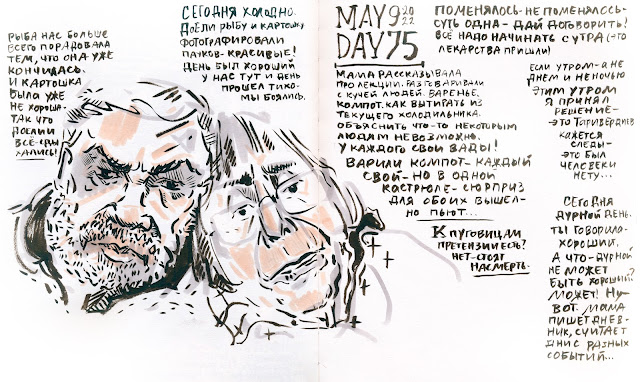 РЫБА НАС БОЛЬШЕ
ВСЕГО ПОРАДОВАЛА
ТЕМ, ЧТО ОНА УЖЕ
КОНЧИЛАСЬ.
И КАРТОШКА
БЫЛА УЖЕ
НЕ ХОРОША-
ТАК ЧТО
ДОЕЛИ
ВСЕ-СРЫ
ХАЛИСЬ!
СЕГОДНЯ ХОЛОДНО.
ДОЕЛИ РЫБУ И КАРТОШКУ
ФОТОГРАФИРОВАЛИ
ПАУКОВ-КРАСИВЫЕ!
ДЕНЬ БЫЛ ХОРОШИЙ
У НАС ТУТ И ДЕНЬ
ПРОШЕЛ ТИХО-
МЫ БОЯЛИСЬ.
MAY 9 2022
DAY 75
МАМА РАССКАЗЫВАЛА
ПРО ЛЕКЦИИ. РАЗГОВАРИВАЛИ
С КУЧЕЙ ЛЮДЕЙ. ВАРЕНЬЕ.
КОМПОТ. КАК ВЫТИРАТЬ ИЗ
ТЕКУЩЕГО ХОЛОДИЛЬНИКА.
ОБЪЯСНИТЬ ЧТО-ТО НЕКОТОРЫМ
ЛЮДЯМ НЕВОЗМОЖНО.
У КАЖДОГО СВОИ ЗАДЫ!
ВАРИЛИ КОМПОТ-КАЖДЫЙ
СВОЙ-НО В ОДНОЙ
КАСТРЮЛЕ-СЮРПРИЗ
ДЛЯ ОБОИХ ВЫШЕЛ-
НО ПЬЮТ...
К ПУГОВИЦАМ
ПРЕТЕНЗИИ ЕСТЬ?
НЕТ-СТОЯТ
НАСМЕРТЬ.
ПОМЕНЯЛОСЬ-НЕ ПОМЕНЯЛОСЬ-
СУТЬ ОДНА-ДАЙ ДОГОВОРИТЬ!
ВСЕ НАДО НАЧИНАТЬ С УТРА (-ЭТО
ЛЕКАРСТВА ПРИШЛИ)
ЕСЛИ УТРОМ-А НЕ
ДНЕМ И НЕ НОЧЬЮ
ЭТИМ УТРОМ
Я ПРИНЯЛ
РЕШЕНИЕ-
ЭТО ТАГИВЕРДИЕВ
КАЖЕТСЯ
СЛЕДЫ-
ЭТО БЫЛ
ЧЕЛОВЕК И
НЕТУ...
СЕГОДНЯ
ДУРНОЙ ДЕНЬ.
ТЫ ГОВОРИЛО-
ХОРОШИЙ.
А ЧТО-ДУРНОЙ
НЕ МОЖЕТ
БЫТЬ ХОРОШИЙ?
МОЖЕТ! НУ-
ВОТ. МАМА
ПИШЕТ ДНЕВ-
НИК, СЧИТАЕТ
ДНИ С РАЗНЫХ
СОБЫТИЙ...